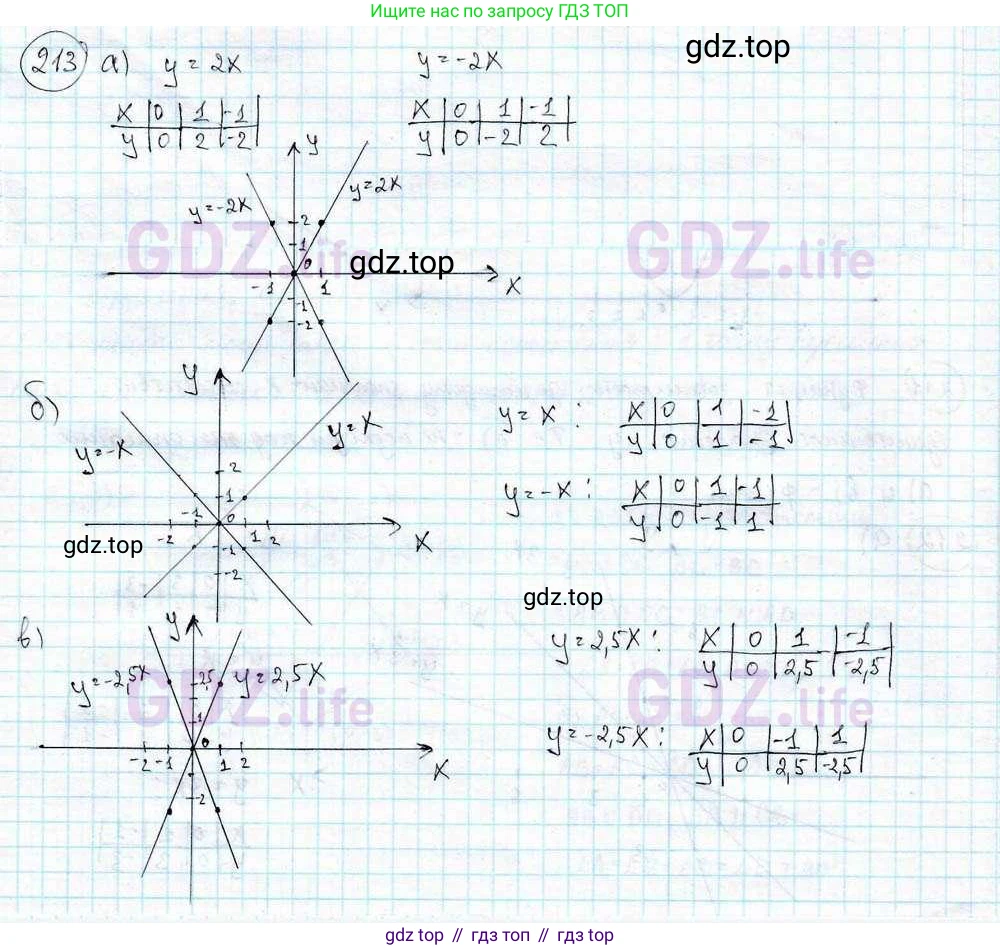 Ищите нас по запросу ГДЗ ТОП
gdz.top
213 а) y = 2x
y = -2x
x | 0 | 1 | -1
y | 0 | 2 | -2
x | 0 | 1 | -1
y | 0 | -2 | 2
y
y=-2x
y=2x
2
1
0
-1
1
x
-1
-2
GDZ.life
GDZ.life
gdz.top
б)
y
y=-x
y=x
2
1
-2
-1
0
1
2
x
-1
-2
gdz.top
y = x :
x | 0 | 1 | -1
y | 0 | 1 | -1
y = -x :
x | 0 | 1 | -1
y | 0 | -1 | 1
gdz.top
в)
y
y=-2,5x
2,5
y=2,5x
1
0
-2
-1
1
2
x
-2
GDZ.life
GDZ.life
y = 2,5x :
x | 0 | 1 | -1
y | 0 | 2,5 | -2,5
y = -2,5x :
x | 0 | -1 | 1
y | 0 | 2,5 | -2,5
gdz.top // gdz.top // gdz.top